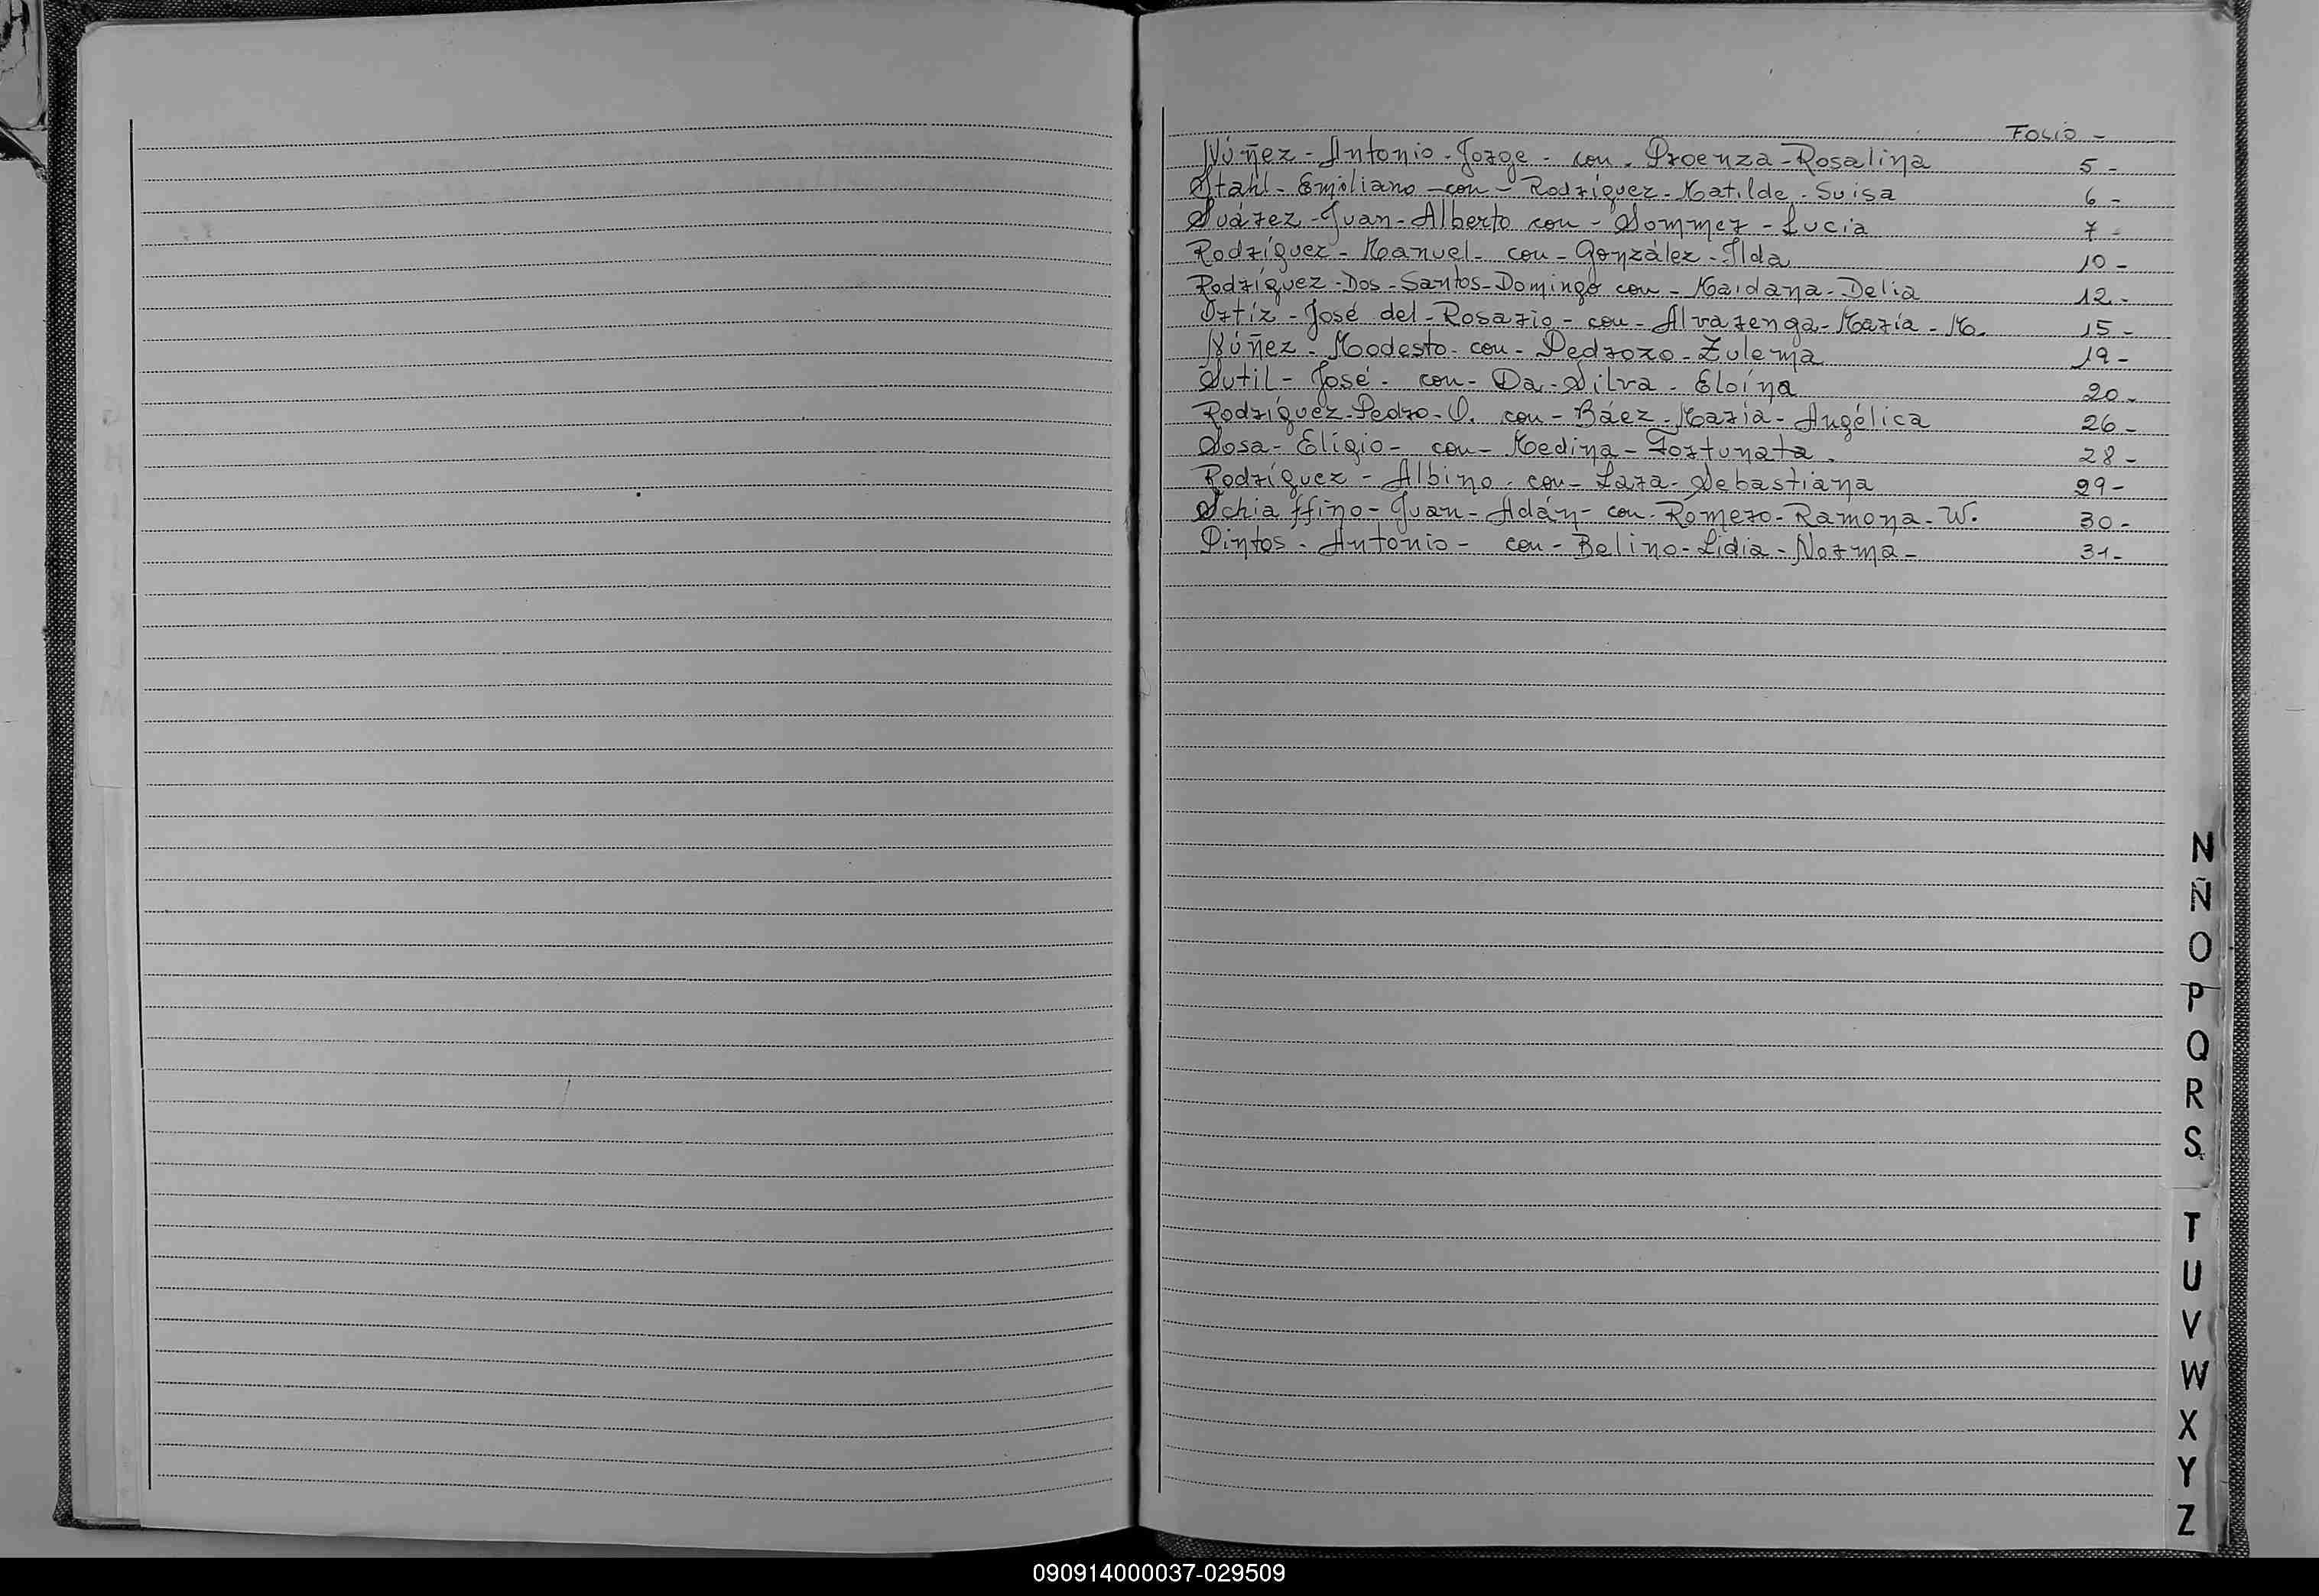 Folio -
Núñez - Antonio - Jorge - con - Proenza - Rosalina 5 -
Stahl - Emiliano - con - Rodríguez - Matilde - Suisa 6 -
Suárez - Juan - Alberto con - Sommer - Lucía 7 -
Rodríguez - Manuel - con - González - Ilda 10 -
Rodríguez - Dos - Santos - Domingo con - Maidana - Delia 12 -
Ortíz - José del - Rosario - con - Alvarenga - María - M. 15 -
Núñez - Modesto - con - Pedrozo - Zulema 19 -
Sutil - José - con - Da - Silva - Eloína 20 -
Rodríguez - Pedro - O. con - Báez - María - Angélica 26 -
Sosa - Eligio - con - Medina - Fortunata - 28 -
Rodríguez - Albino - con - Lara - Sebastiana 29 -
Schiaffino - Juan - Adán - con - Romero - Ramona - W. 30 -
Pintos - Antonio - con - Belino - Lidia - Norma - 31 -
N
Ñ
O
P
Q
R
S
T
U
V
W
X
Y
Z
090914000037-029509